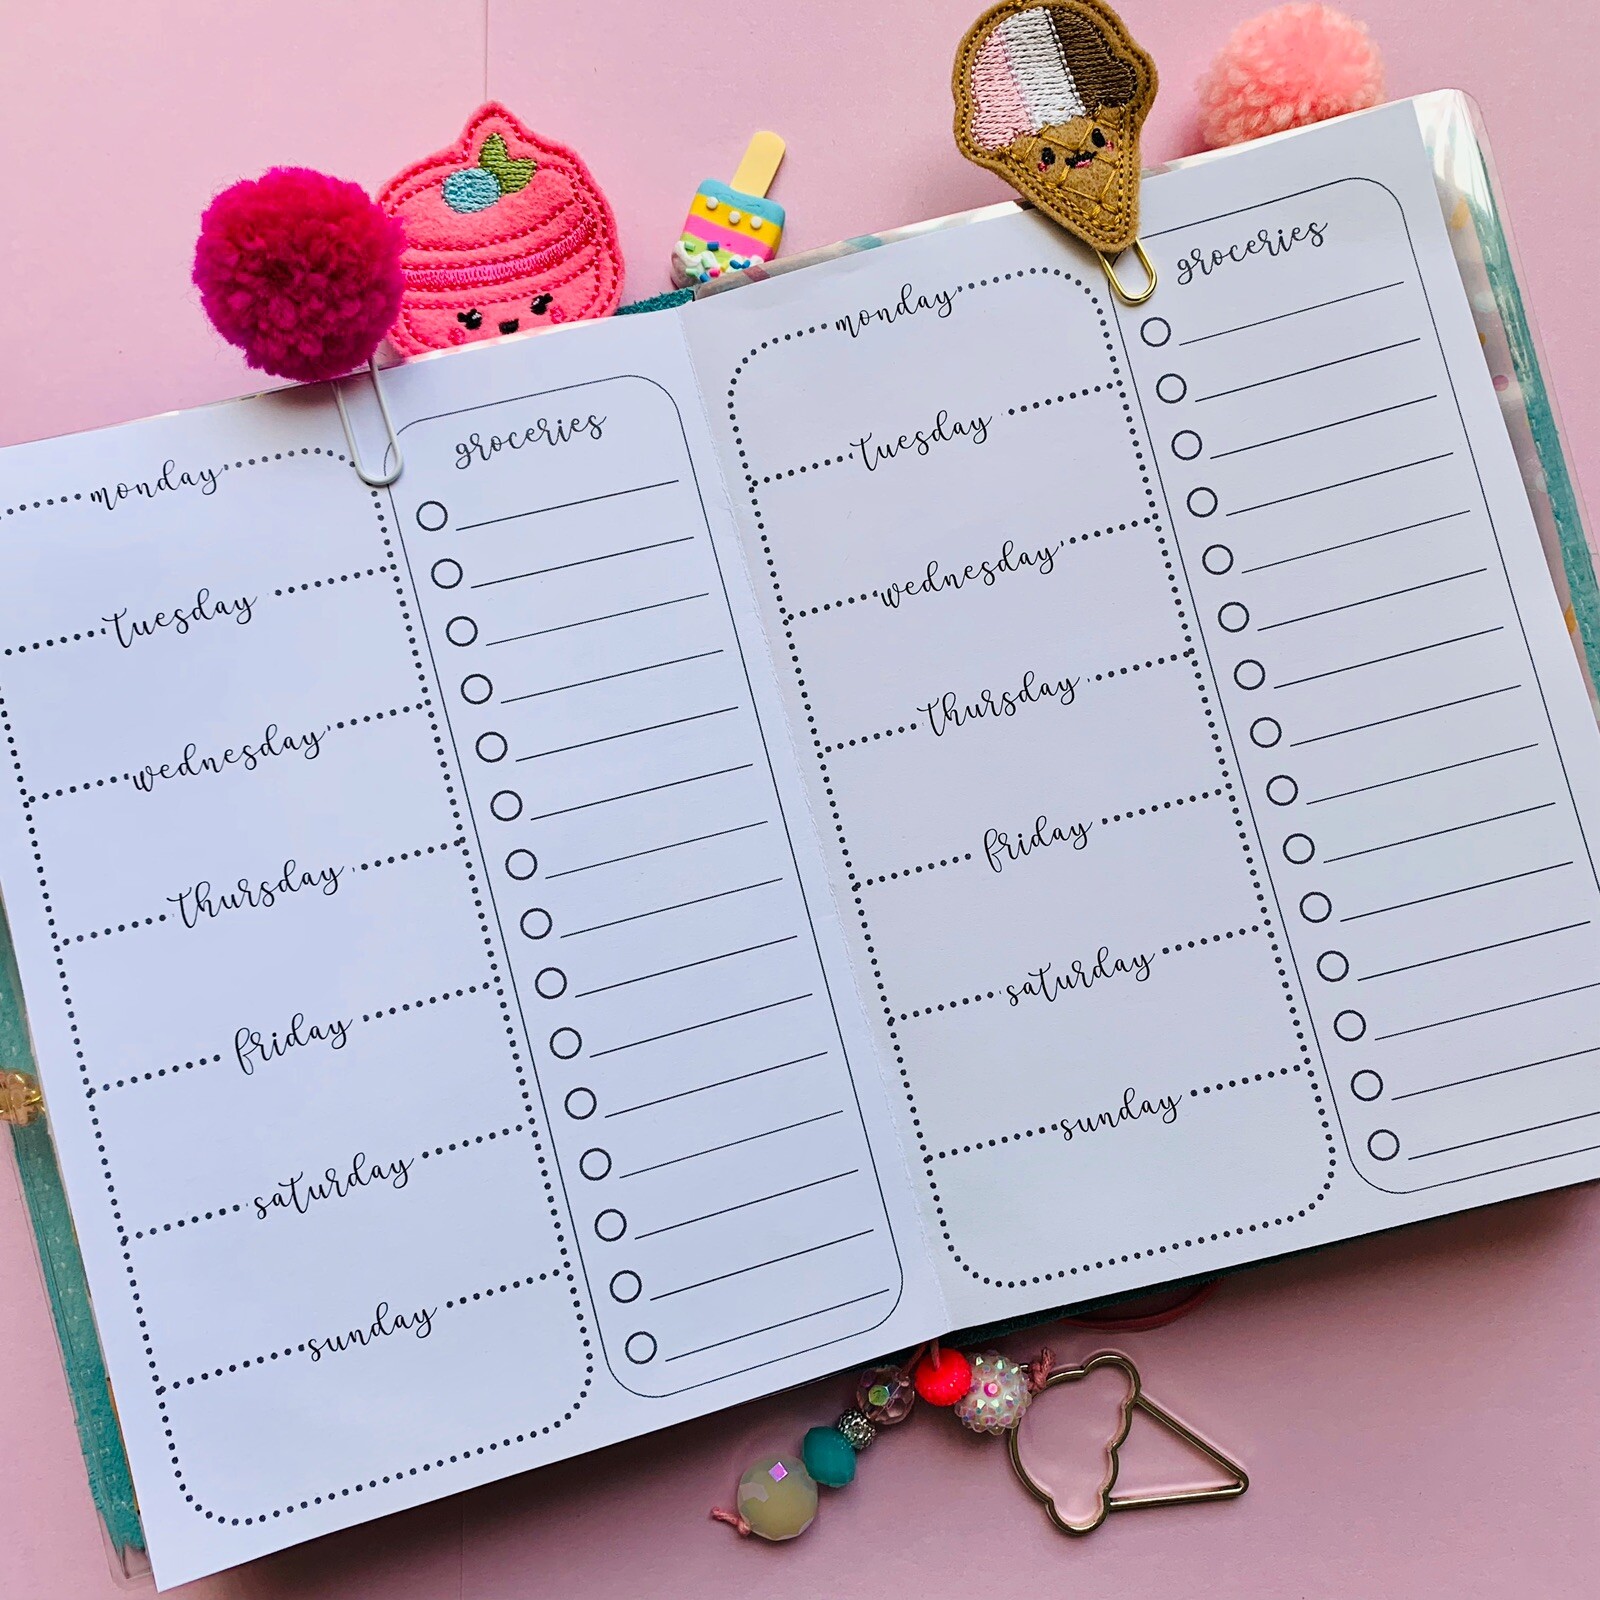 monday
tuesday
wednesday
thursday
friday
saturday
sunday
groceries
monday
tuesday
wednesday
thursday
friday
saturday
sunday
groceries